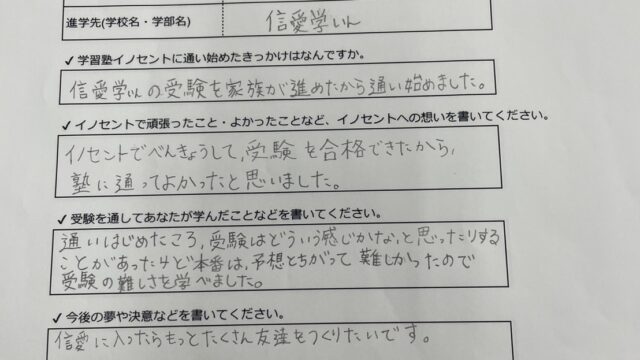 進学先(学校名・学部名) 信愛学いん
✓ 学習塾イノセントに通い始めたきっかけはなんですか。
信愛学いんの受験を家族が進めたから通い始めました。
✓ イノセントで頑張ったこと・よかったことなど、イノセントへの想いを書いてください。
イノセントでべんきょうして、受験を合格できたから、
塾に通ってよかったと思いました。
✓ 受験を通してあなたが学んだことなどを書いてください。
通いはじめたころ、受験はどういう感じかな、と思ったりする
ことがあったけど本番は、予想とちがって難しかったので
受験の難しさを学べました。
✓ 今後の夢や決意などを書いてください。
信愛に入ったらもっとたくさん友達をつくりたいです。